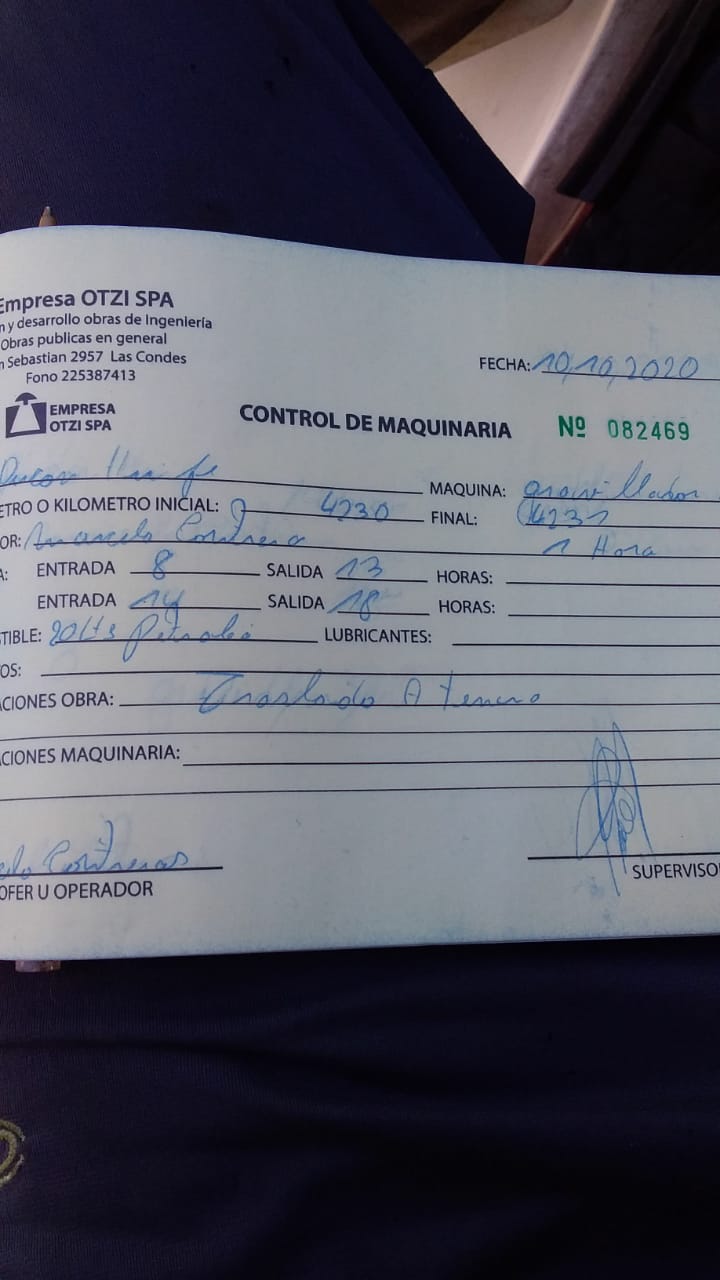 Empresa OTZI SPA
n y desarrollo obras de Ingeniería
Obras publicas en general
n Sebastian 2957 Las Condes
Fono 225387413
FECHA: 10,10,2020
EMPRESA
OTZI SPA
CONTROL DE MAQUINARIA Nº 082469
MAQUINA:
ETRO O KILOMETRO INICIAL: 4230 FINAL: 4231
OR: Marcelo Contrera 1 Hora
A: ENTRADA 8 SALIDA 13 HORAS:
ENTRADA 14 SALIDA 18 HORAS:
TIBLE: 20Lts Petroleo LUBRICANTES:
OS:
ACIONES OBRA: Traslado A
ACIONES MAQUINARIA:
elo Contreras
OFER U OPERADOR SUPERVISO